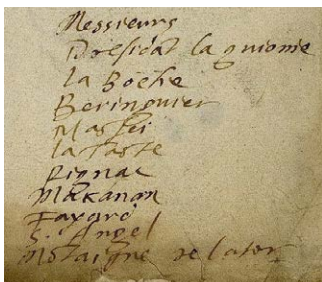 Messieurs
Presidat la guionie
la Boetie
Beringuier
Maslei
la taste
Rignac
Makanan
Fayard
S. Angel
Motaigne relator